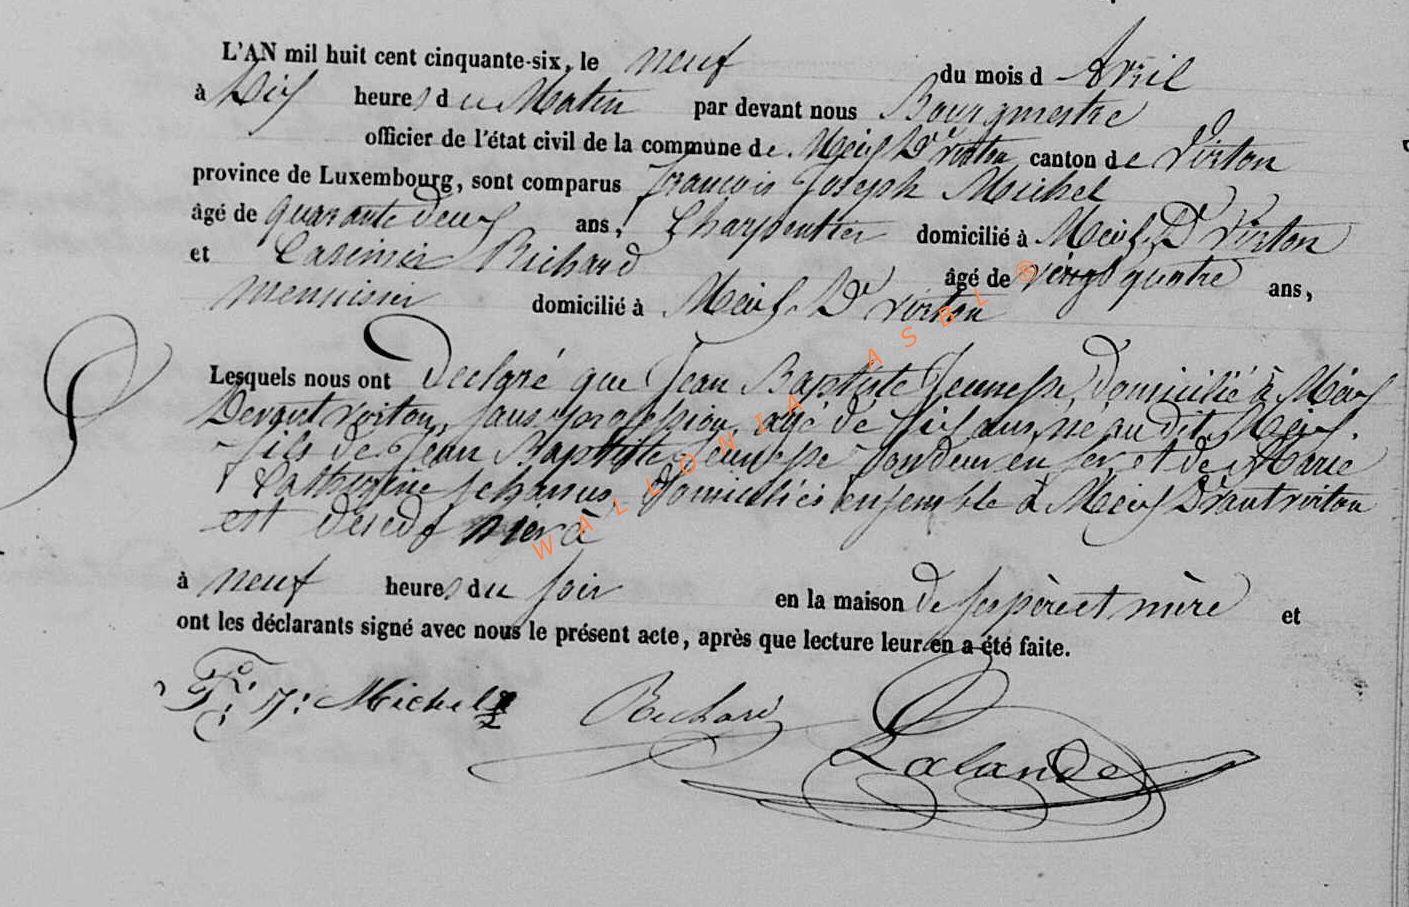 L'AN mil huit cent cinquante-six, le neuf du mois d Avril
à Dix heures du Matin par devant nous Bourgmestre
officier de l'état civil de la commune de Meix Dt virton canton de Virton
province de Luxembourg, sont comparus François Joseph Michel
âgé de quarante deux ans, Charpentier domicilié à Meix Dt Virton
et Casimir Richard âgé de vingt quatre ans,
menuisier domicilié à Meix Dt virton
Lesquels nous ont Declaré que Jean Baptiste Jeunesse, domicilié à Meix
Devant virton, sans profession, agé de six ans, né au dit Meix
fils de Jean Baptiste Jeunesse fondeur en fer et de Marie
Catherine domiciliés ensemble à Meix Devant virton
est décédé hier à
à neuf heures du soir en la maison de ses père et mère et
ont les déclarants signé avec nous le présent acte, après que lecture leur en a été faite.
F: J: Michel Richard
Lalande
WALLONIA ASBL ®